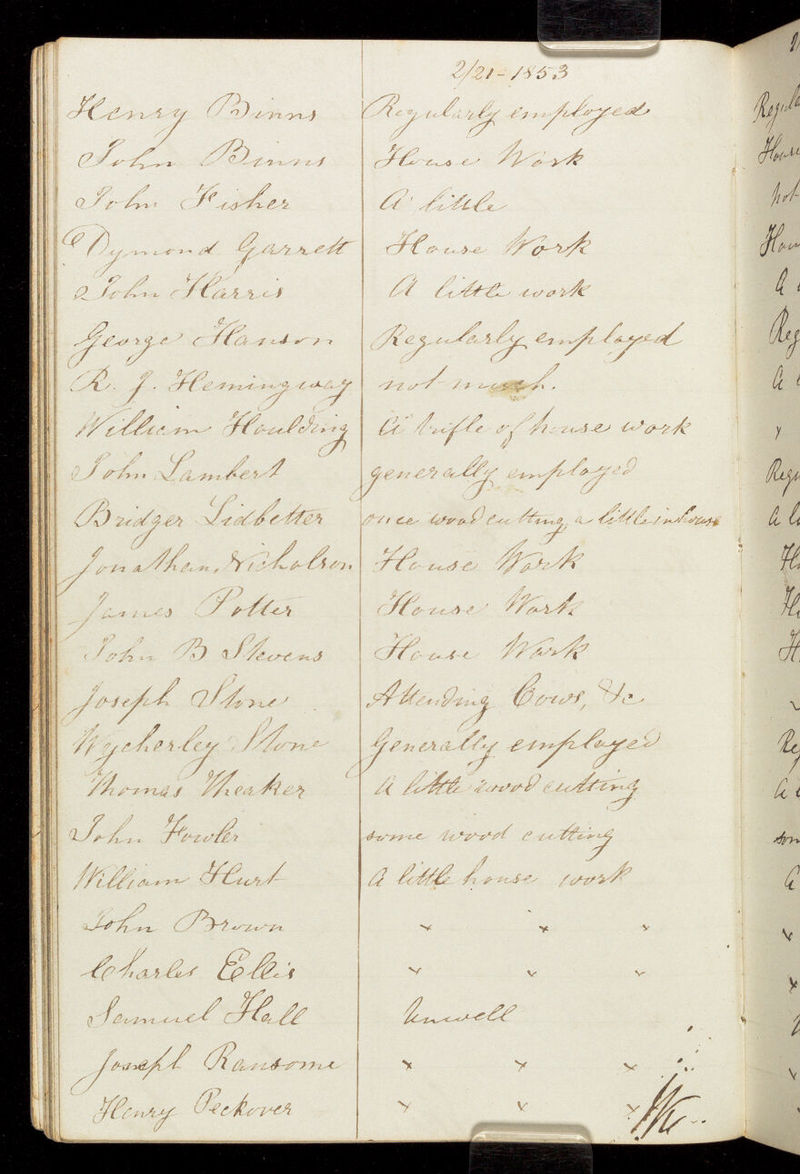 2/21-1853
Henry Binns Regularly employed
John Binns House Work
John Fisher A little
Dymond Garrett House Work
John Harris A little work
George Hanson Regularly employed
R. J. Hemingway not much.
William Houlding A trifle of house work
John Lambert generally employed
Bridger Lidbetter once wood cutting a little in house
Jonathan Nicholson House Work
James Potter House Work
John B Stevens House Work
Joseph Stone Attending Cows, &c
Wycherley Stone Generally employed
Thomas Theaker A little wood cutting
John Fowler some wood cutting
William Hurt A little house work
John Brown " " "
Charles Ellis " " "
Samuel Hall Unwell
Joseph Ransome " " "
Henry Peckover " " "